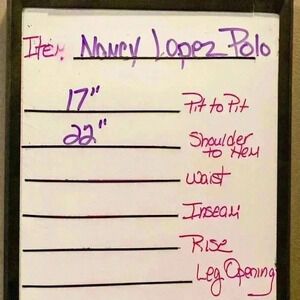 Item: Nancy Lopez Polo
17" Pit to Pit
22" Shoulder
to Hem
Waist
Inseam
Rise
Leg Opening